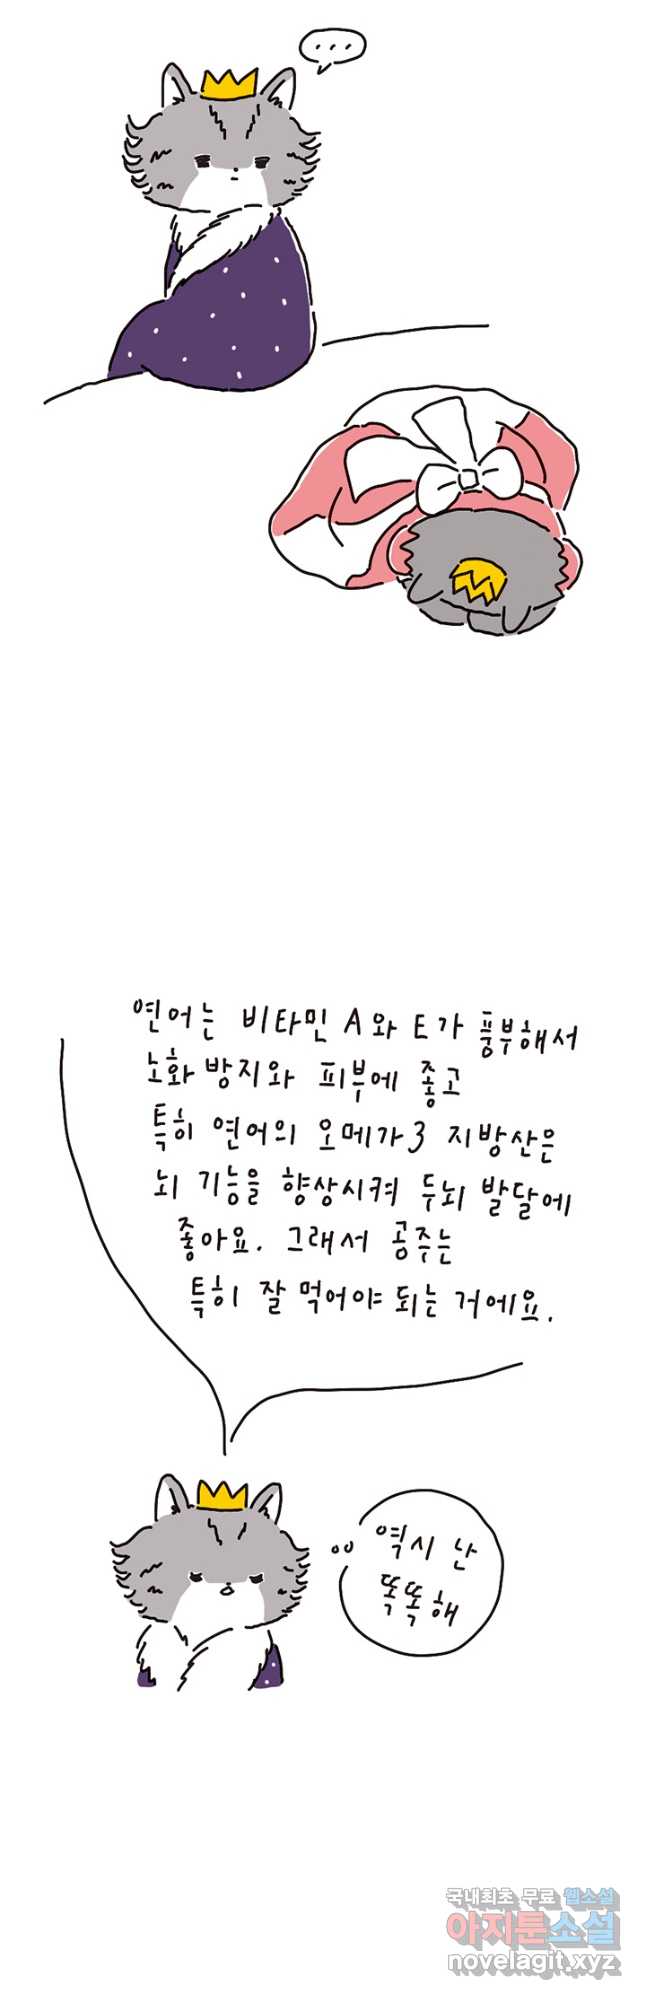 ...
연어는 비타민 A와 E가 풍부해서
노화 방지와 피부에 좋고
특히 연어의 오메가3 지방산은
뇌 기능을 향상시켜 두뇌 발달에
좋아요. 그래서 공주는
특히 잘 먹어야 되는 거에요.
역시 난
똑똑해
국내최초 무료 웹소설
아지툰소설
novelagit.xyz